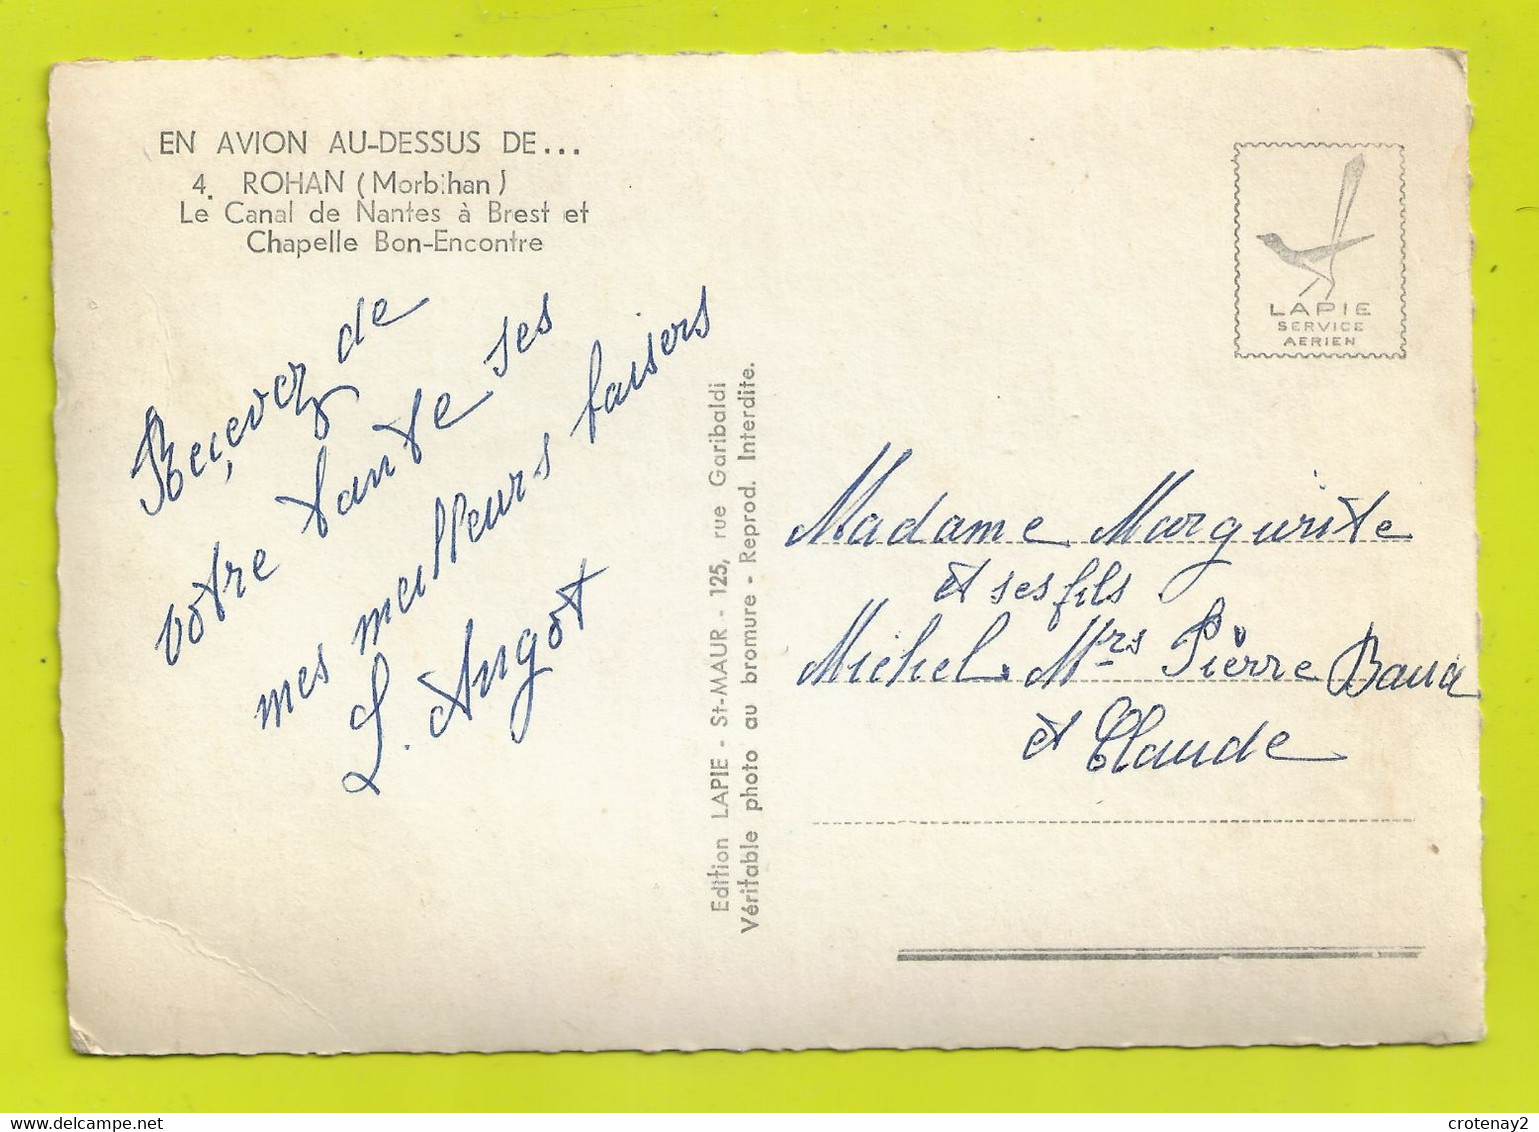 EN AVION AU-DESSUS DE...
4. ROHAN (Morbihan)
Le Canal de Nantes à Brest et
Chapelle Bon-Encontre
Reçevez de
votre tante ses
mes meilleurs baisers
L. Angot
Edition LAPIE - St-MAUR - 125, rue Garibaldi
Véritable photo au bromure - Reprod. Interdite.
LAPIE
SERVICE
AERIEN
Madame Margurite
et ses fils
Michel. Mrs Pierre
et Claude
delcampe.net
crotenay2